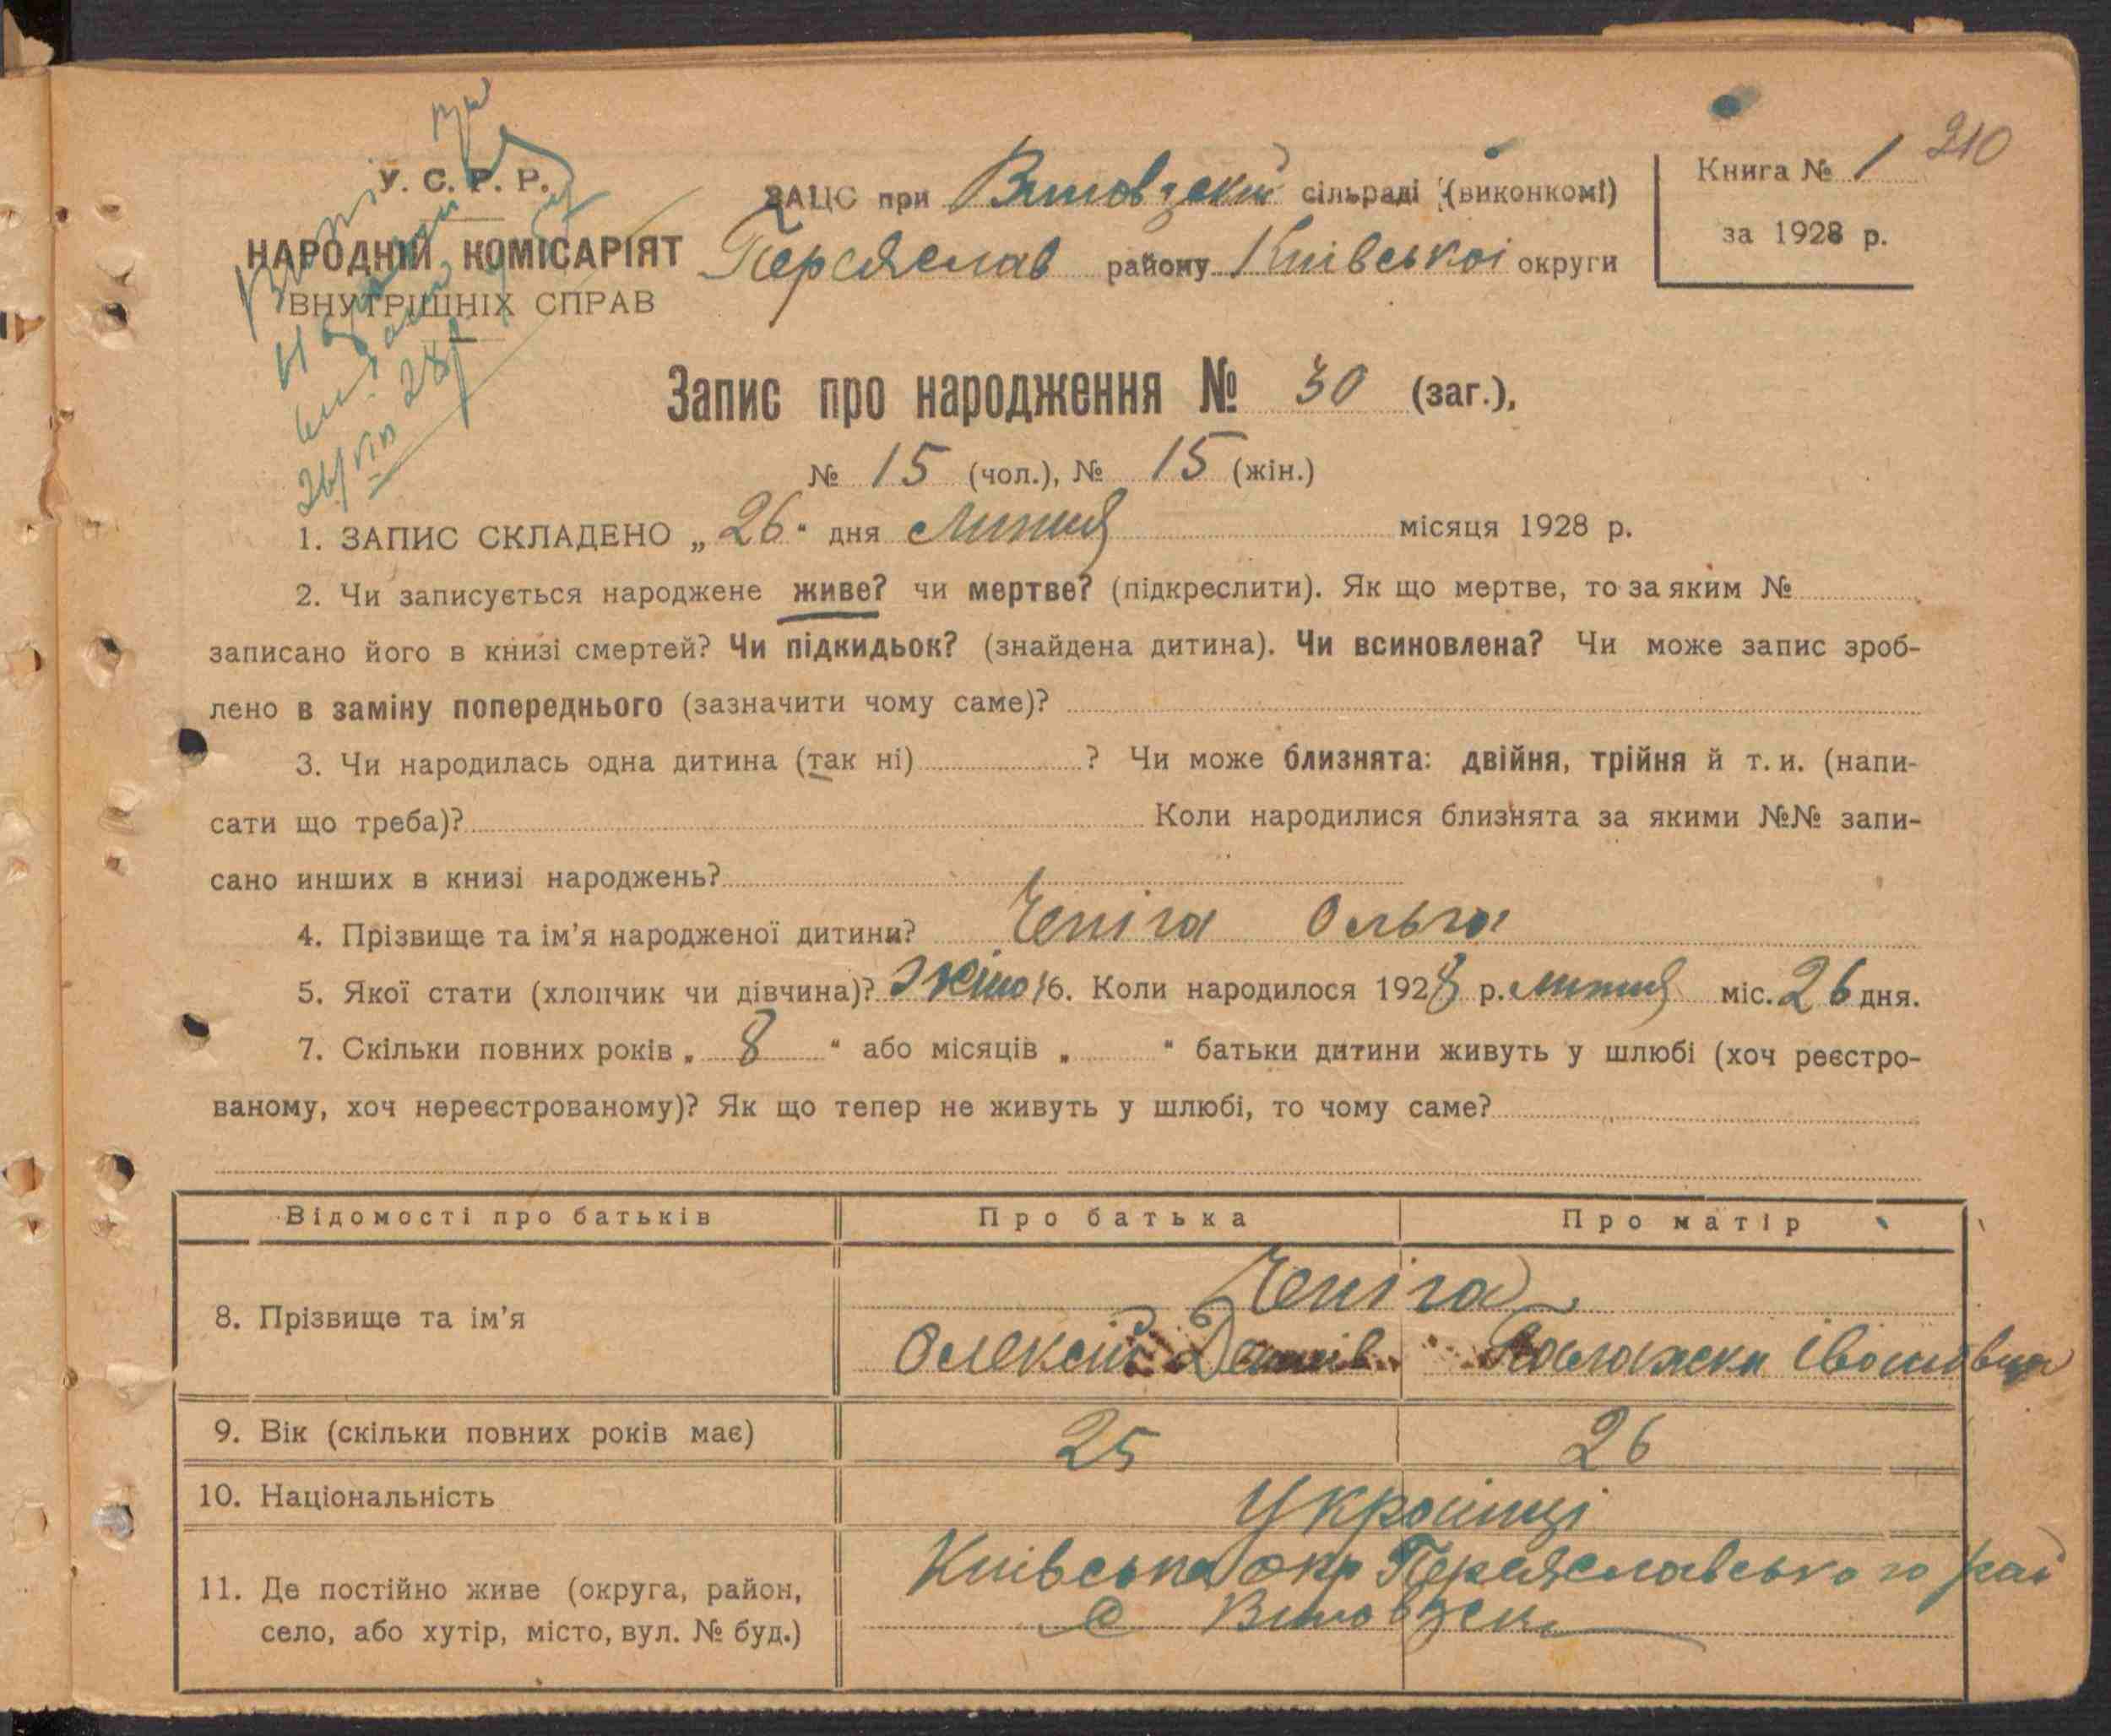 210
У. С. Р. Р.
НАРОДНІЙ КОМІСАРІЯТ
ВНУТРІШНІХ СПРАВ
ЗАЦС при сільраді (виконкомі)
Переяслав району Київської округи
Книга № 1
за 1928 р.
Запис про народження № 30 (заг.),
№ 15 (чол.), № 15 (жін.)
1. ЗАПИС СКЛАДЕНО „26“ дня Липня місяця 1928 р.
2. Чи записується народжене живе? чи мертве? (підкреслити). Як що мертве, то за яким №
записано його в книзі смертей? Чи підкидьок? (знайдена дитина). Чи всиновлена? Чи може запис зроб-
лено в заміну попереднього (зазначити чому саме)?
3. Чи народилась одна дитина (так ні) ? Чи може близнята: двійня, трійня й т. и. (напи-
сати що треба)? Коли народилися близнята за якими №№ запи-
сано инших в книзі народжень?
4. Прізвище та ім’я народженої дитини? Чепіга Ольга
5. Якої стати (хлопчик чи дівчина)? 6. Коли народилося 1928 р. липня міс. 26 дня.
7. Скільки повних років „ 8 “ або місяців „ “ батьки дитини живуть у шлюбі (хоч реєстро-
ваному, хоч нереєстрованому)? Як що тепер не живуть у шлюбі, то чому саме?
Відомості про батьків Про батька Про матір
8. Прізвище та ім’я Чепіга
Олексій Палажка Івановна
9. Вік (скільки повних років має) 25 26
10. Національність Українці
11. Де постійно живе (округа, район, Київська окр Переяславського рай
село, або хутір, місто, вул. № буд.) с
26/VII 28